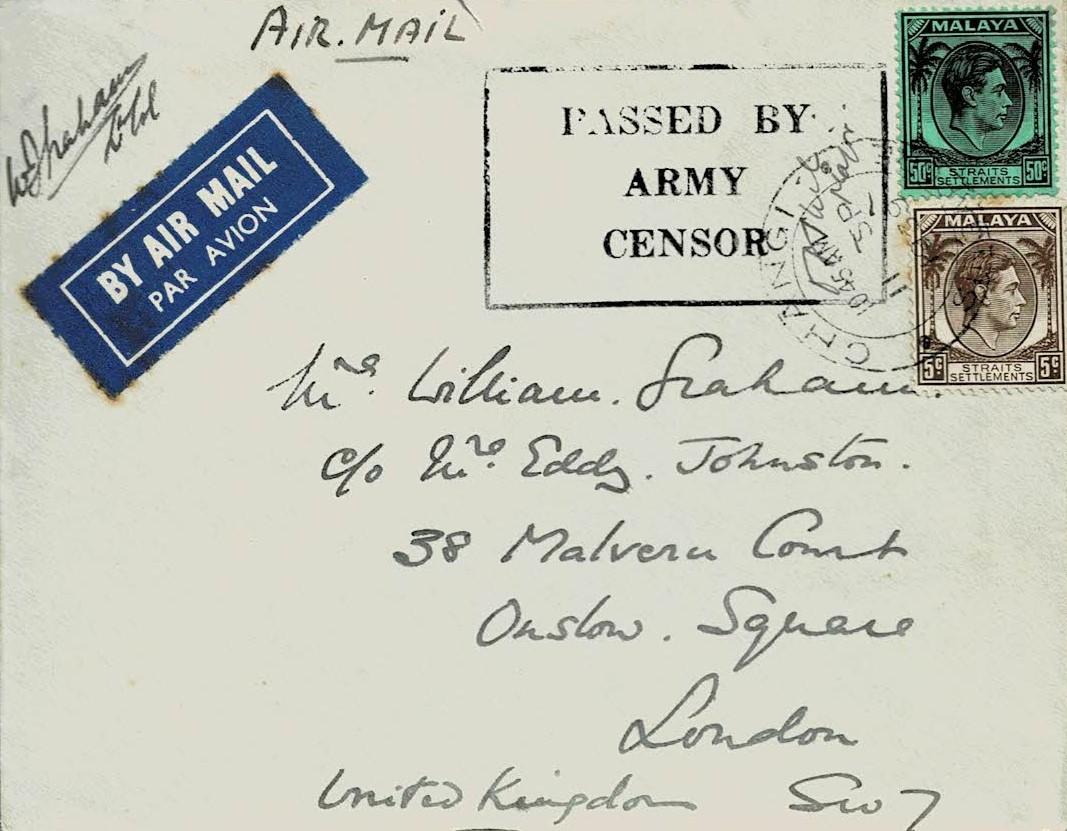 AIR. MAIL
W Graham
BY AIR MAIL
PAR AVION
PASSED BY
ARMY
CENSOR
MALAYA
50c 50c
STRAITS
SETTLEMENTS
MALAYA
5c 5c
STRAITS
SETTLEMENTS
CHANGI
10.45 AM
11 SP
Mrs. William. Graham.
c/o Mrs. Eddy. Johnston.
38 Malvern Court
Onslow. Square
London
United Kingdom SW7